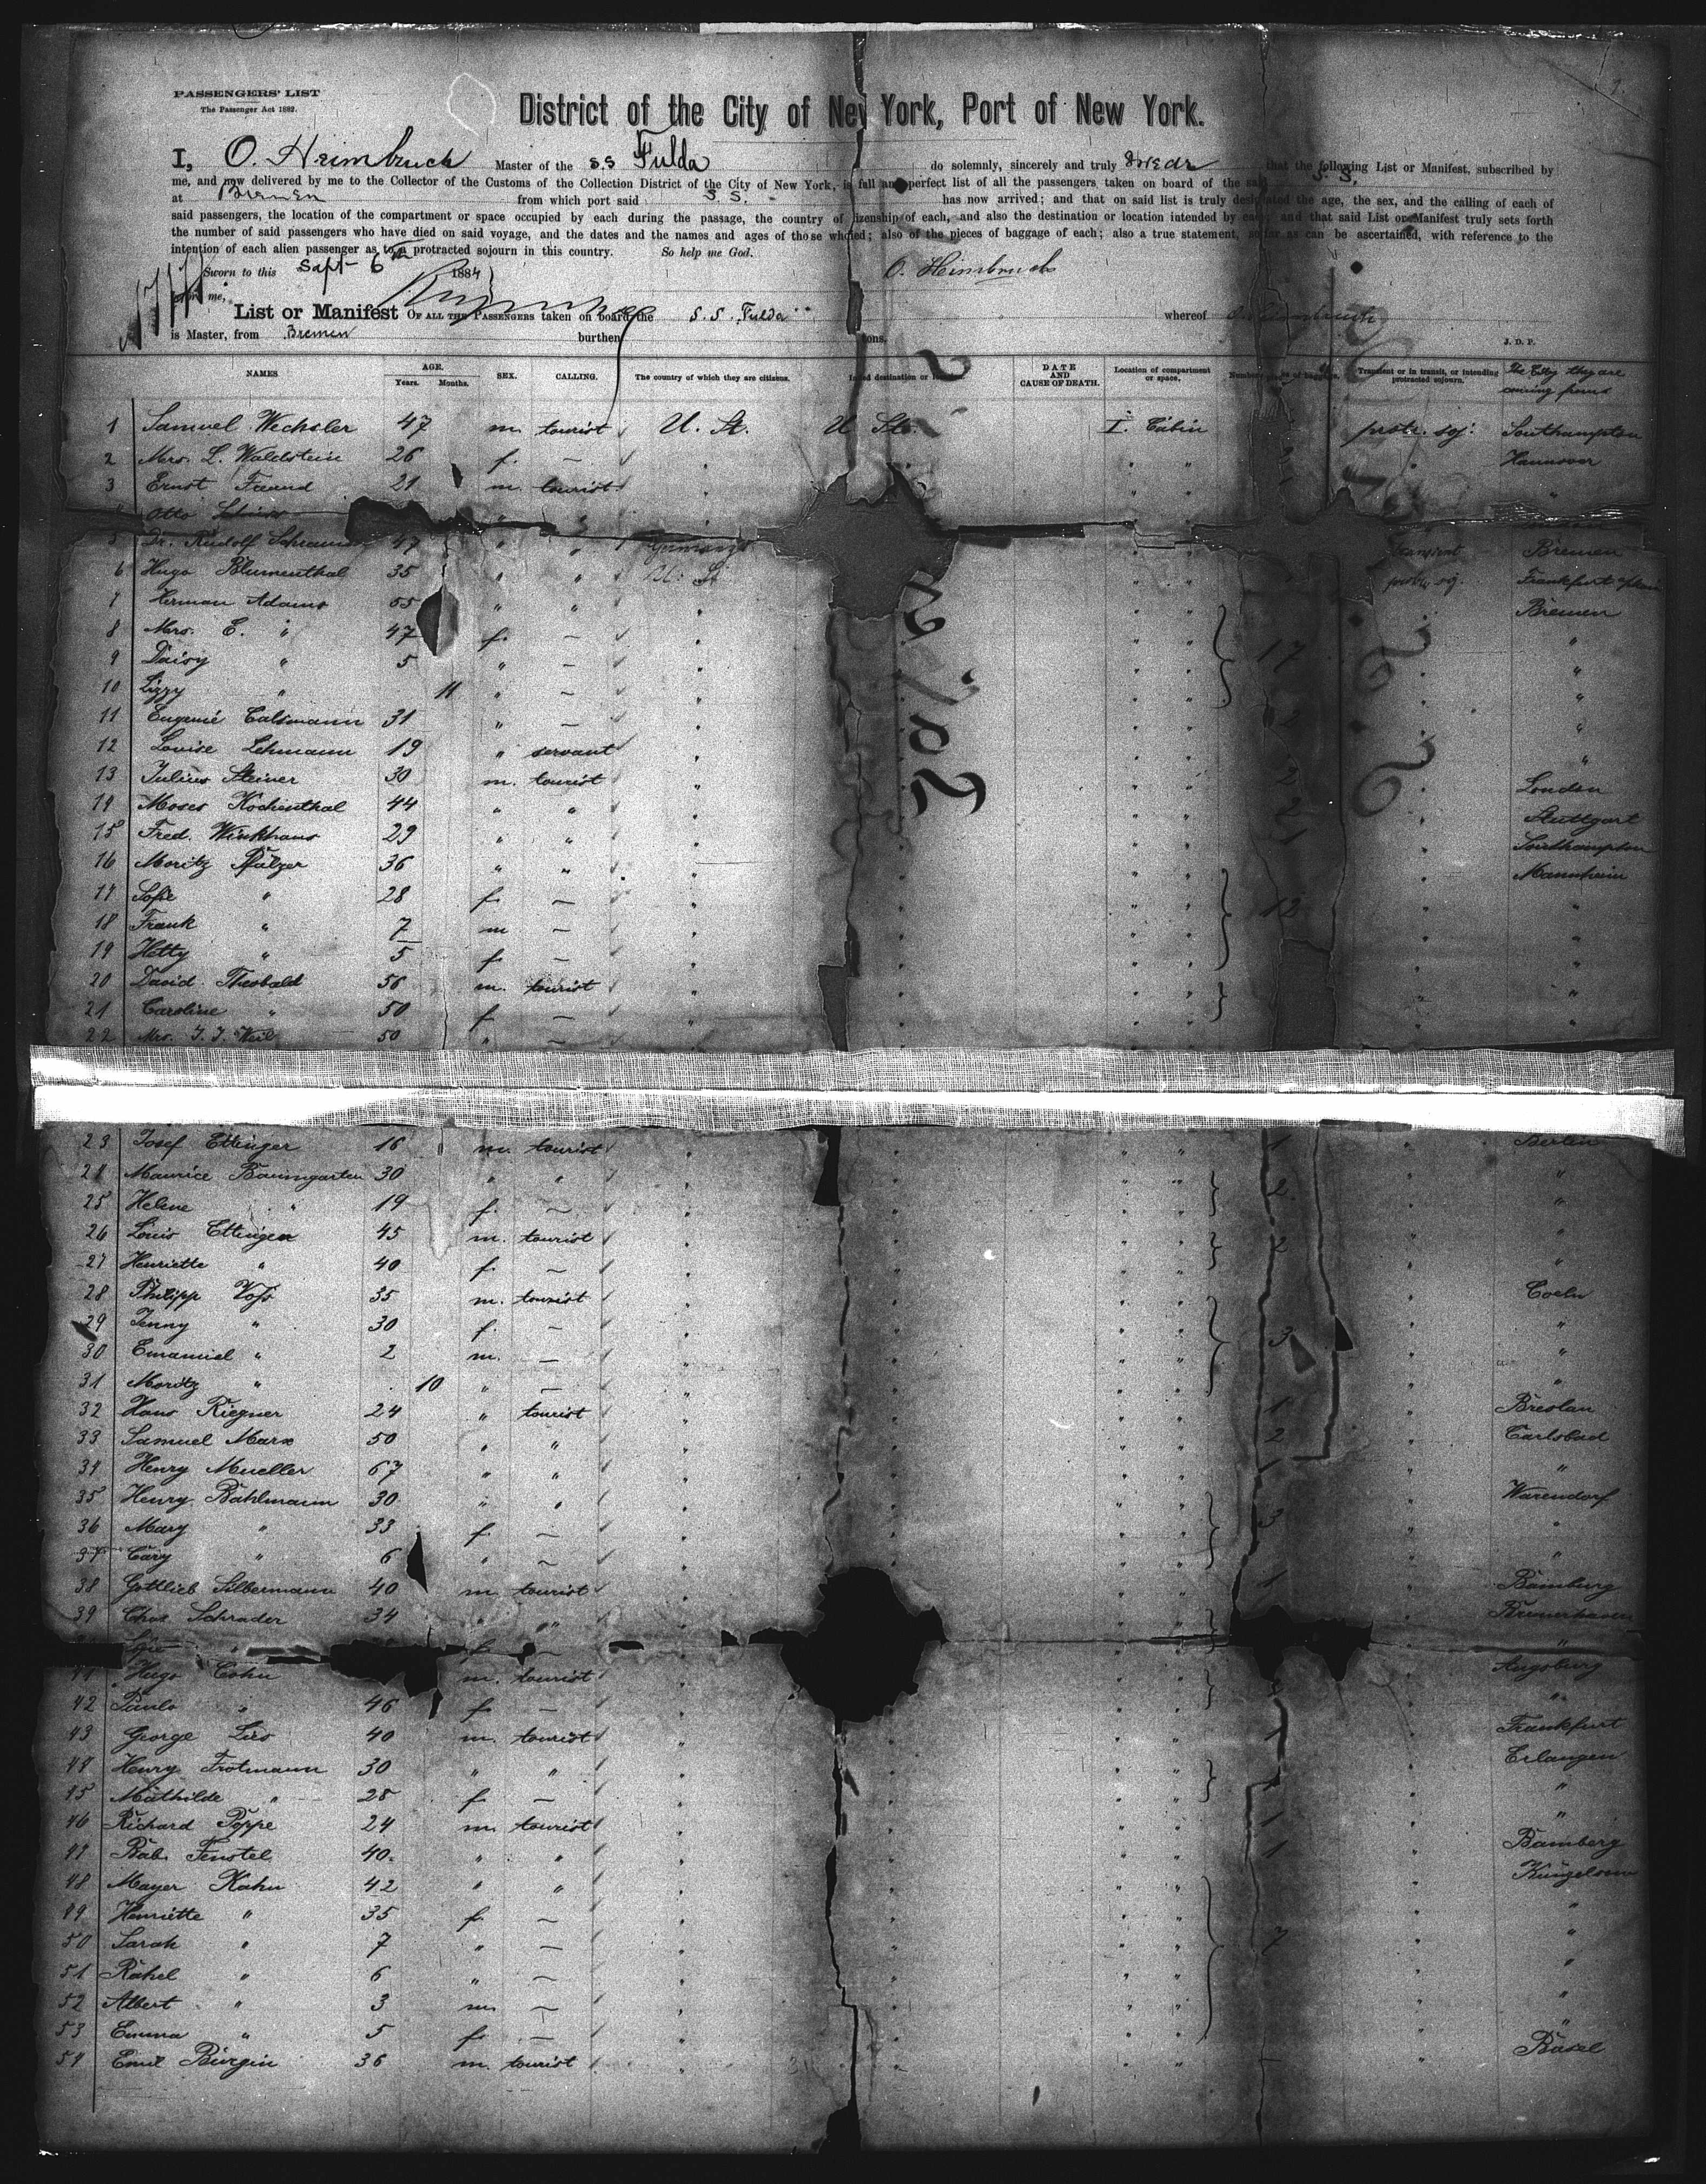 7.
PASSENGERS' LIST
The Passenger Act 1882.
District of the City of New York, Port of New York.
I, O. Heimbruch Master of the S.S Fulda do solemnly, sincerely and truly swear that the following List or Manifest, subscribed by
me, and now delivered by me to the Collector of the Customs of the Collection District of the City of New York, is full and perfect list of all the passengers taken on board of the said S. S.
at Bremen from which port said S. S. has now arrived; and that on said list is truly designated the age, the sex, and the calling of each of
said passengers, the location of the compartment or space occupied by each during the passage, the country of citizenship of each, and also the destination or location intended by each, and that said List or Manifest truly sets forth
the number of said passengers who have died on said voyage, and the dates and the names and ages of those who died; also of the pieces of baggage of each; also a true statement, so far as can be ascertained, with reference to the
intention of each alien passenger as to a protracted sojourn in this country. So help me God.
Sworn to this Sept 6th 1884 O. Heimbruch
before me,
List or Manifest OF ALL THE PASSENGERS taken on board the S. S. Fulda whereof O. Heimbruch
is Master, from Bremen burthen tons. J. D. P.
NAMES AGE. Years. Months. SEX. CALLING. The country of which they are citizens. Intended destination or DATE AND CAUSE OF DEATH. Location of compartment or space. Number of pieces of baggage. Transient or in transit, or intending protracted sojourn. The City they are coming from
1 Samuel Wechsler 47 m. tourist U. St. U. Sts. I. Cabin protr. soj. Southampton
2 Mrs. L. Waldstein 26 f. — " " " " Hannover
3 Ernst Freund 21 m. tourist " " " 1 " "
Otto " "
5 Dr. Rudolf 47 " " Germany " " transient Bremen
6 Hugo Blumenthal 35 " " U. St " " protr. soj. Frankfurt
7 Herman Adams 55 " " " " " " Bremen
8 Mrs. E. " 47 f. — " " " " "
9 Daisy " 5 " — " " " 17 " "
10 Lizzy " 11 " — " " " " "
11 Eugenie 31 " — " " " 2 " "
12 Louise Lehmann 19 " servant " " " " "
13 Julius Steiner 30 m. tourist " " " 2 " London
14 Moses Kochenthal 44 " " " " " 2 " Stuttgart
15 Fred. Winkhaus 29 " " " " " 1 " Southampton
16 Moritz Pfälzer 36 " " " " " " Mannheim
17 Sofie " 28 f. — " " " 12 " "
18 Frank " 7 m — " " " " "
19 Hetty " 5 f. — " " " " "
20 David Theobald 56 m. tourist " " " " "
21 Caroline " 50 f. — " " " " "
22 Mrs. J. J. Weil 50 " —
23 Josef Ettinger 16 m. tourist " " " 1 " Berlin
24 Maurice Baumgarten 30 " " " " " 2 " "
25 Helene " 19 f. — " " " " "
26 Louis Ettinger 45 m. tourist " " " 2 " "
27 Henriette " 40 f. — " " " " "
28 Philipp Voss 35 m. tourist " " " " Coeln
29 Jenny " 30 f. — " " " 3 " "
30 Emanuel " 2 m. — " " " " "
31 Moritz " 10 " — " " " " "
32 Hans Riegner 24 " tourist " " " 1 " Breslau
33 Samuel Marx 50 " " " " " 2 " Carlsbad
34 Henry Mueller 67 " " " " " 1 " "
35 Henry Bahlmann 30 " " " " " " Warendorf
36 Mary " 33 f. — " " " 3 " "
37 Cary " 6 " — " " " " "
38 Gottlieb Silbermann 40 m. tourist " " " 1 " Bamburg
39 Chas. Schrader 34 " " " " " " Bremerhaven
" f. — "
41 Hugo Cohn m. tourist " " " " Augsburg
42 Paula " 46 f. — " " " " "
43 George Lies 40 m. tourist " " " 1 " Frankfurt
44 Henry Trotmann 30 " " " " " " Erlangen
45 Mathilde " 28 f. — " " " " "
46 Richard Poppe 24 m. tourist " " " 1 " "
47 Bab. Fenstel 40. " " " " " 1 " Bamberg
48 Mayer Kahn 42 " " " " " " Küngelsau
49 Henriette " 35 f. — " " " " "
50 Sarah " 7 " — " " " 7 " "
51 Rahel " 6 " — " " " " "
52 Albert " 3 m. — " " " " "
53 Emma " 5 f. — " " " " "
54 Emil Bürgin 36 m. tourist " " " — " Basel